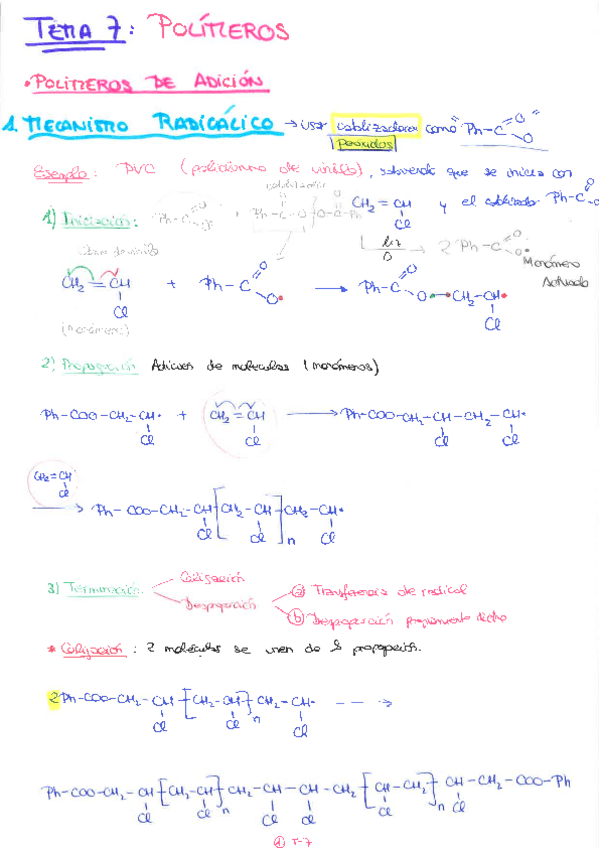 TEMA 7: POLÍMEROS
• POLÍMEROS DE ADICIÓN
1. MECANISMO RADICÁLICO → usar catalizadores como "Ph-C O O"
peróxidos
Ejemplo: PVC (policloruro de vinilo), sabiendo que se inicia con
CH2=CH Cl y el catalizador Ph-C O
1) Iniciación: Ph-C + Ph-C-O O-C-Ph
luz Δ → 2 Ph-C O O•
Monómero Activado
CH2=CH Cl + Ph-C O O• → Ph-C O O-CH2-CH• Cl
(monómero)
2) Propagación Adiciones de moléculas (monómeros)
Ph-COO-CH2-CH• Cl + CH2=CH Cl → Ph-COO-CH2-CH-CH2-CH• Cl Cl
CH2=CH Cl
→ Ph-COO-CH2-CH[CH2-CH]n CH2-CH• Cl Cl Cl
Coligación
3) Terminación a Transferencia de radical
Despropoción
b Despropoción propiamente dicho
* Coligación: 2 moléculas se unen de la propagación.
2Ph-COO-CH2-CH[CH2-CH]n CH2-CH• Cl Cl Cl - - →
Ph-COO-CH2-CH[CH2-CH]n CH2-CH-CH-CH2[CH-CH2]n CH-CH2-COO-Ph Cl Cl Cl Cl Cl Cl
① T-7